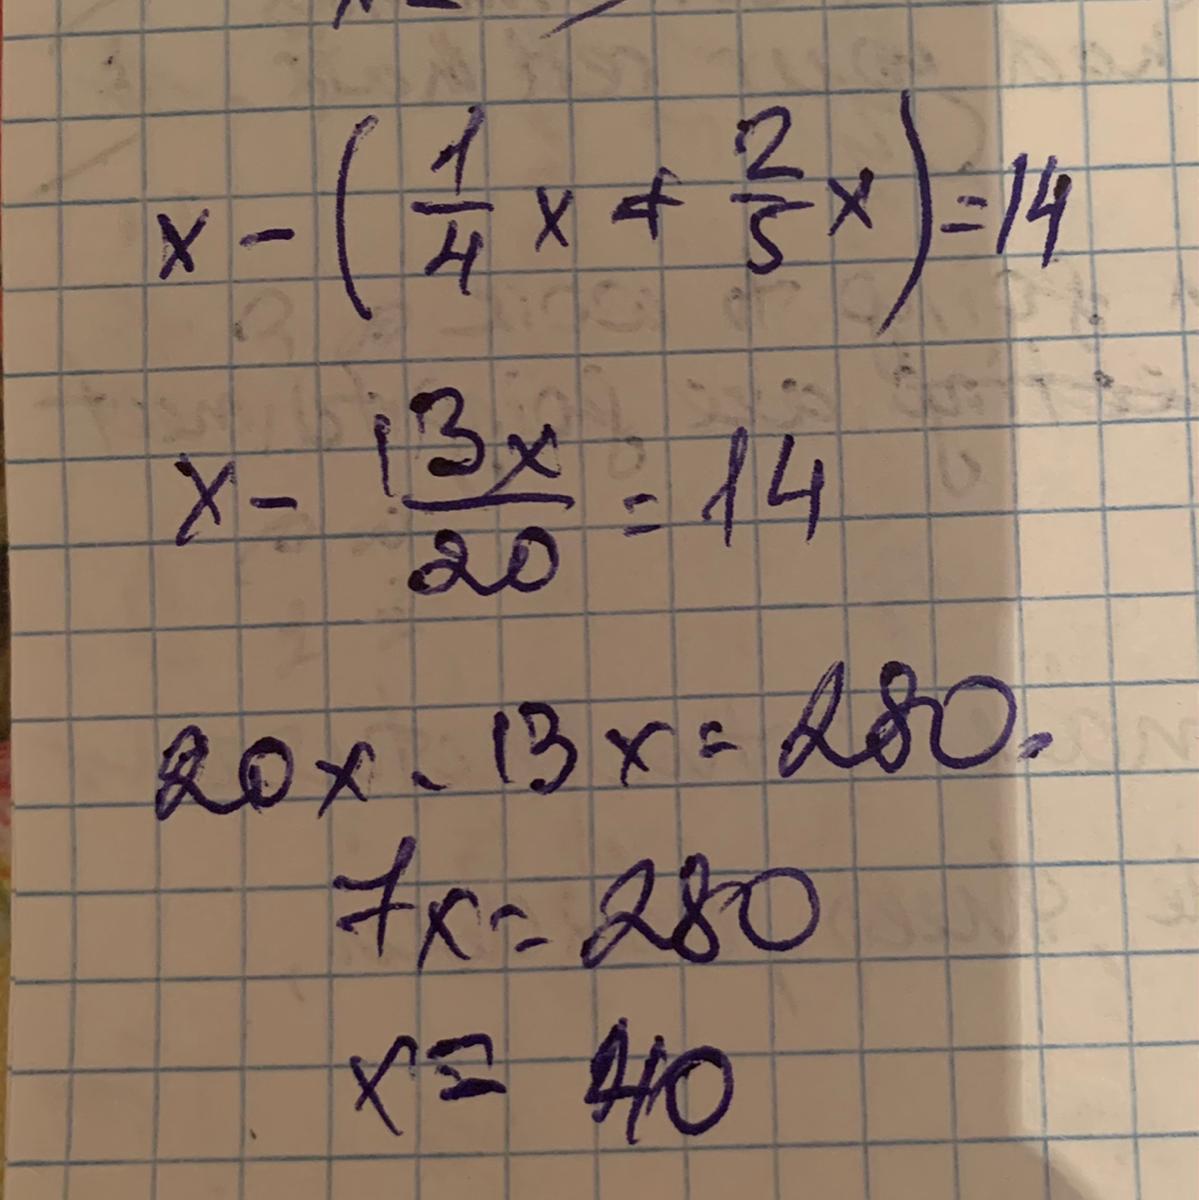 x - (1/4 x + 2/5 x) = 14
x - 13x/20 = 14
20x - 13x = 280.
7x = 280
x = 40